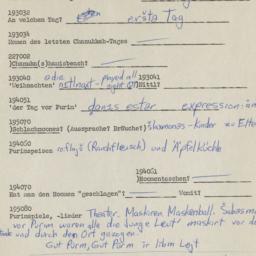 193032
An welchem Tag? eršta Tag
193034
Nomen des letzten Chanukkah-Tages
227002
Chanuk(a)thausisbench?
193040 193041
'Weihnachten' nitlnaxt - played all Nittl?
194051
'der Tag vor Purim' danis ester expression:
195070
Schlachmones? (Aussprache? Bräuche?) šlaxmonas - Kinder zu
194060
Purimspeisen (Rauchfleisch) und Äpfelküchle
194061
Homentaschen?
194070
Hat man den Hoomen "geschlagen"? Womit?
195080
Purimspiele, -lieder Theater. Maskieren Maskenball.
Purim waren alle die junge Leut' maskirt
und durch dem Ort gegangen.
Gut Purm, Gut Purm ir libm Lejt